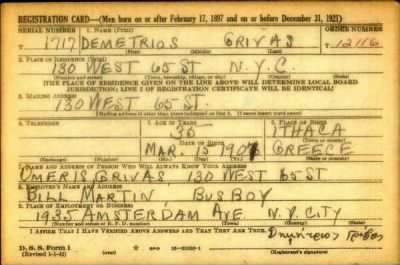 REGISTRATION CARD—(Men born on or after February 17, 1897 and on or before December 31, 1921)
SERIAL NUMBER 1. NAME (Print) ORDER NUMBER
1717 DEMETRIOS GRIVAS 12116
(First) (Middle) (Last)
2. PLACE OF RESIDENCE (Print)
130 WEST 65 ST N.Y.C
(Number and street) (Town, township, village, or city) (County) (State)
[THE PLACE OF RESIDENCE GIVEN ON THE LINE ABOVE WILL DETERMINE LOCAL BOARD
JURISDICTION; LINE 2 OF REGISTRATION CERTIFICATE WILL BE IDENTICAL]
3. MAILING ADDRESS
130 WEST 65 ST.
[Mailing address if other than place indicated on line 2. If same insert word same]
4. TELEPHONE 5. AGE IN YEARS 6. PLACE OF BIRTH
35 ITHACA
DATE OF BIRTH (Town or county)
MAR 15 GREECE
(Exchange) (Number) (Mo.) (Day) (Yr.) (State or country)
7. NAME AND ADDRESS OF PERSON WHO WILL ALWAYS KNOW YOUR ADDRESS
OMERIS GRIVAS 130 WEST 65 ST
8. EMPLOYER'S NAME AND ADDRESS
BILL MARTIN, BUS BOY
9. PLACE OF EMPLOYMENT OR BUSINESS
1935 AMSTERDAM AVE N.Y CITY
(Number and street or R. F. D. number) (Town) (County) (State)
I AFFIRM THAT I HAVE VERIFIED ABOVE ANSWERS AND THAT THEY ARE TRUE.
D. S. S. Form 1
(Revised 1-1-42) (over) (Registrant's signature)